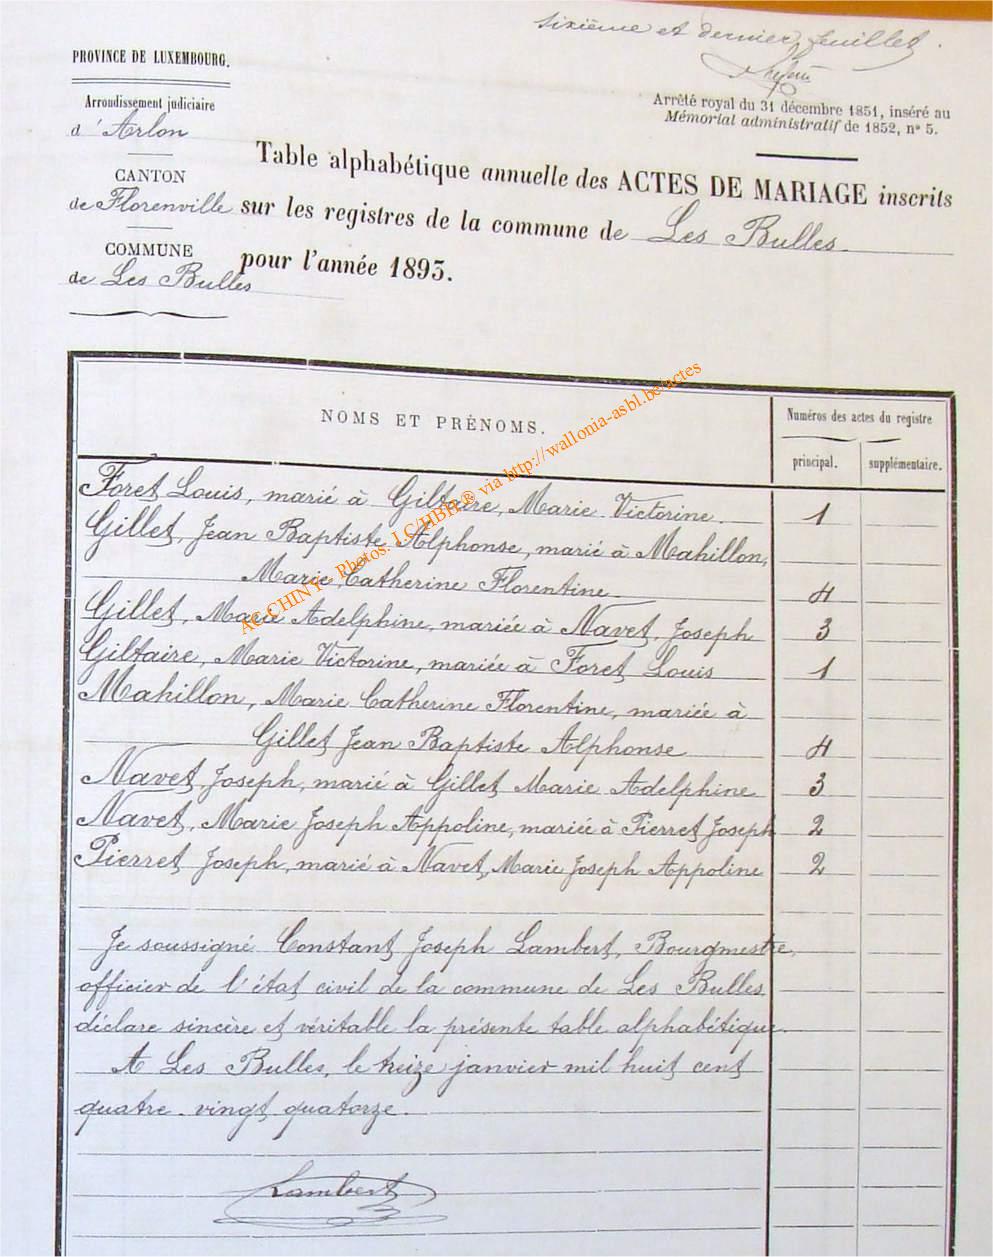 sixième et dernier feuillet.
PROVINCE DE LUXEMBOURG.
Arrondissement judiciaire
d'Arlon
CANTON
de Florenville
COMMUNE
de Les Bulles
Arrêté royal du 31 décembre 1851, inséré au
Mémorial administratif de 1852, n° 5.
Table alphabétique annuelle des ACTES DE MARIAGE inscrits
sur les registres de la commune de Les Bulles
pour l'année 1893.
NOMS ET PRÉNOMS.
Numéros des actes du registre
principal. supplémentaire.
Foret Louis, marié à Giltaire, Marie Victorine. 1
Gillet, Jean Baptiste Alphonse, marié à Mahillon,
Marie Catherine Florentine. 4
Gillet, Marie Adelphine, mariée à Navet, Joseph 3
Giltaire, Marie Victorine, mariée à Foret Louis 1
Mahillon, Marie Catherine Florentine, mariée à
Gillet Jean Baptiste Alphonse 4
Navet, Joseph, marié à Gillet Marie Adelphine 3
Navet, Marie Joseph Appoline, mariée à Pierret Joseph 2
Pierret Joseph, marié à Navet, Marie Joseph Appoline 2
Je soussigné Constant Joseph Lambert, Bourgmestre,
officier de l'état civil de la commune de Les Bulles
déclare sincère et véritable la présente table alphabétique.
A Les Bulles, le treize janvier mil huit cent
quatre-vingt quatorze.
Lambert
AC CHINY - Photos. J.C/HBH ® via http://wallonia-asbl.be/actes